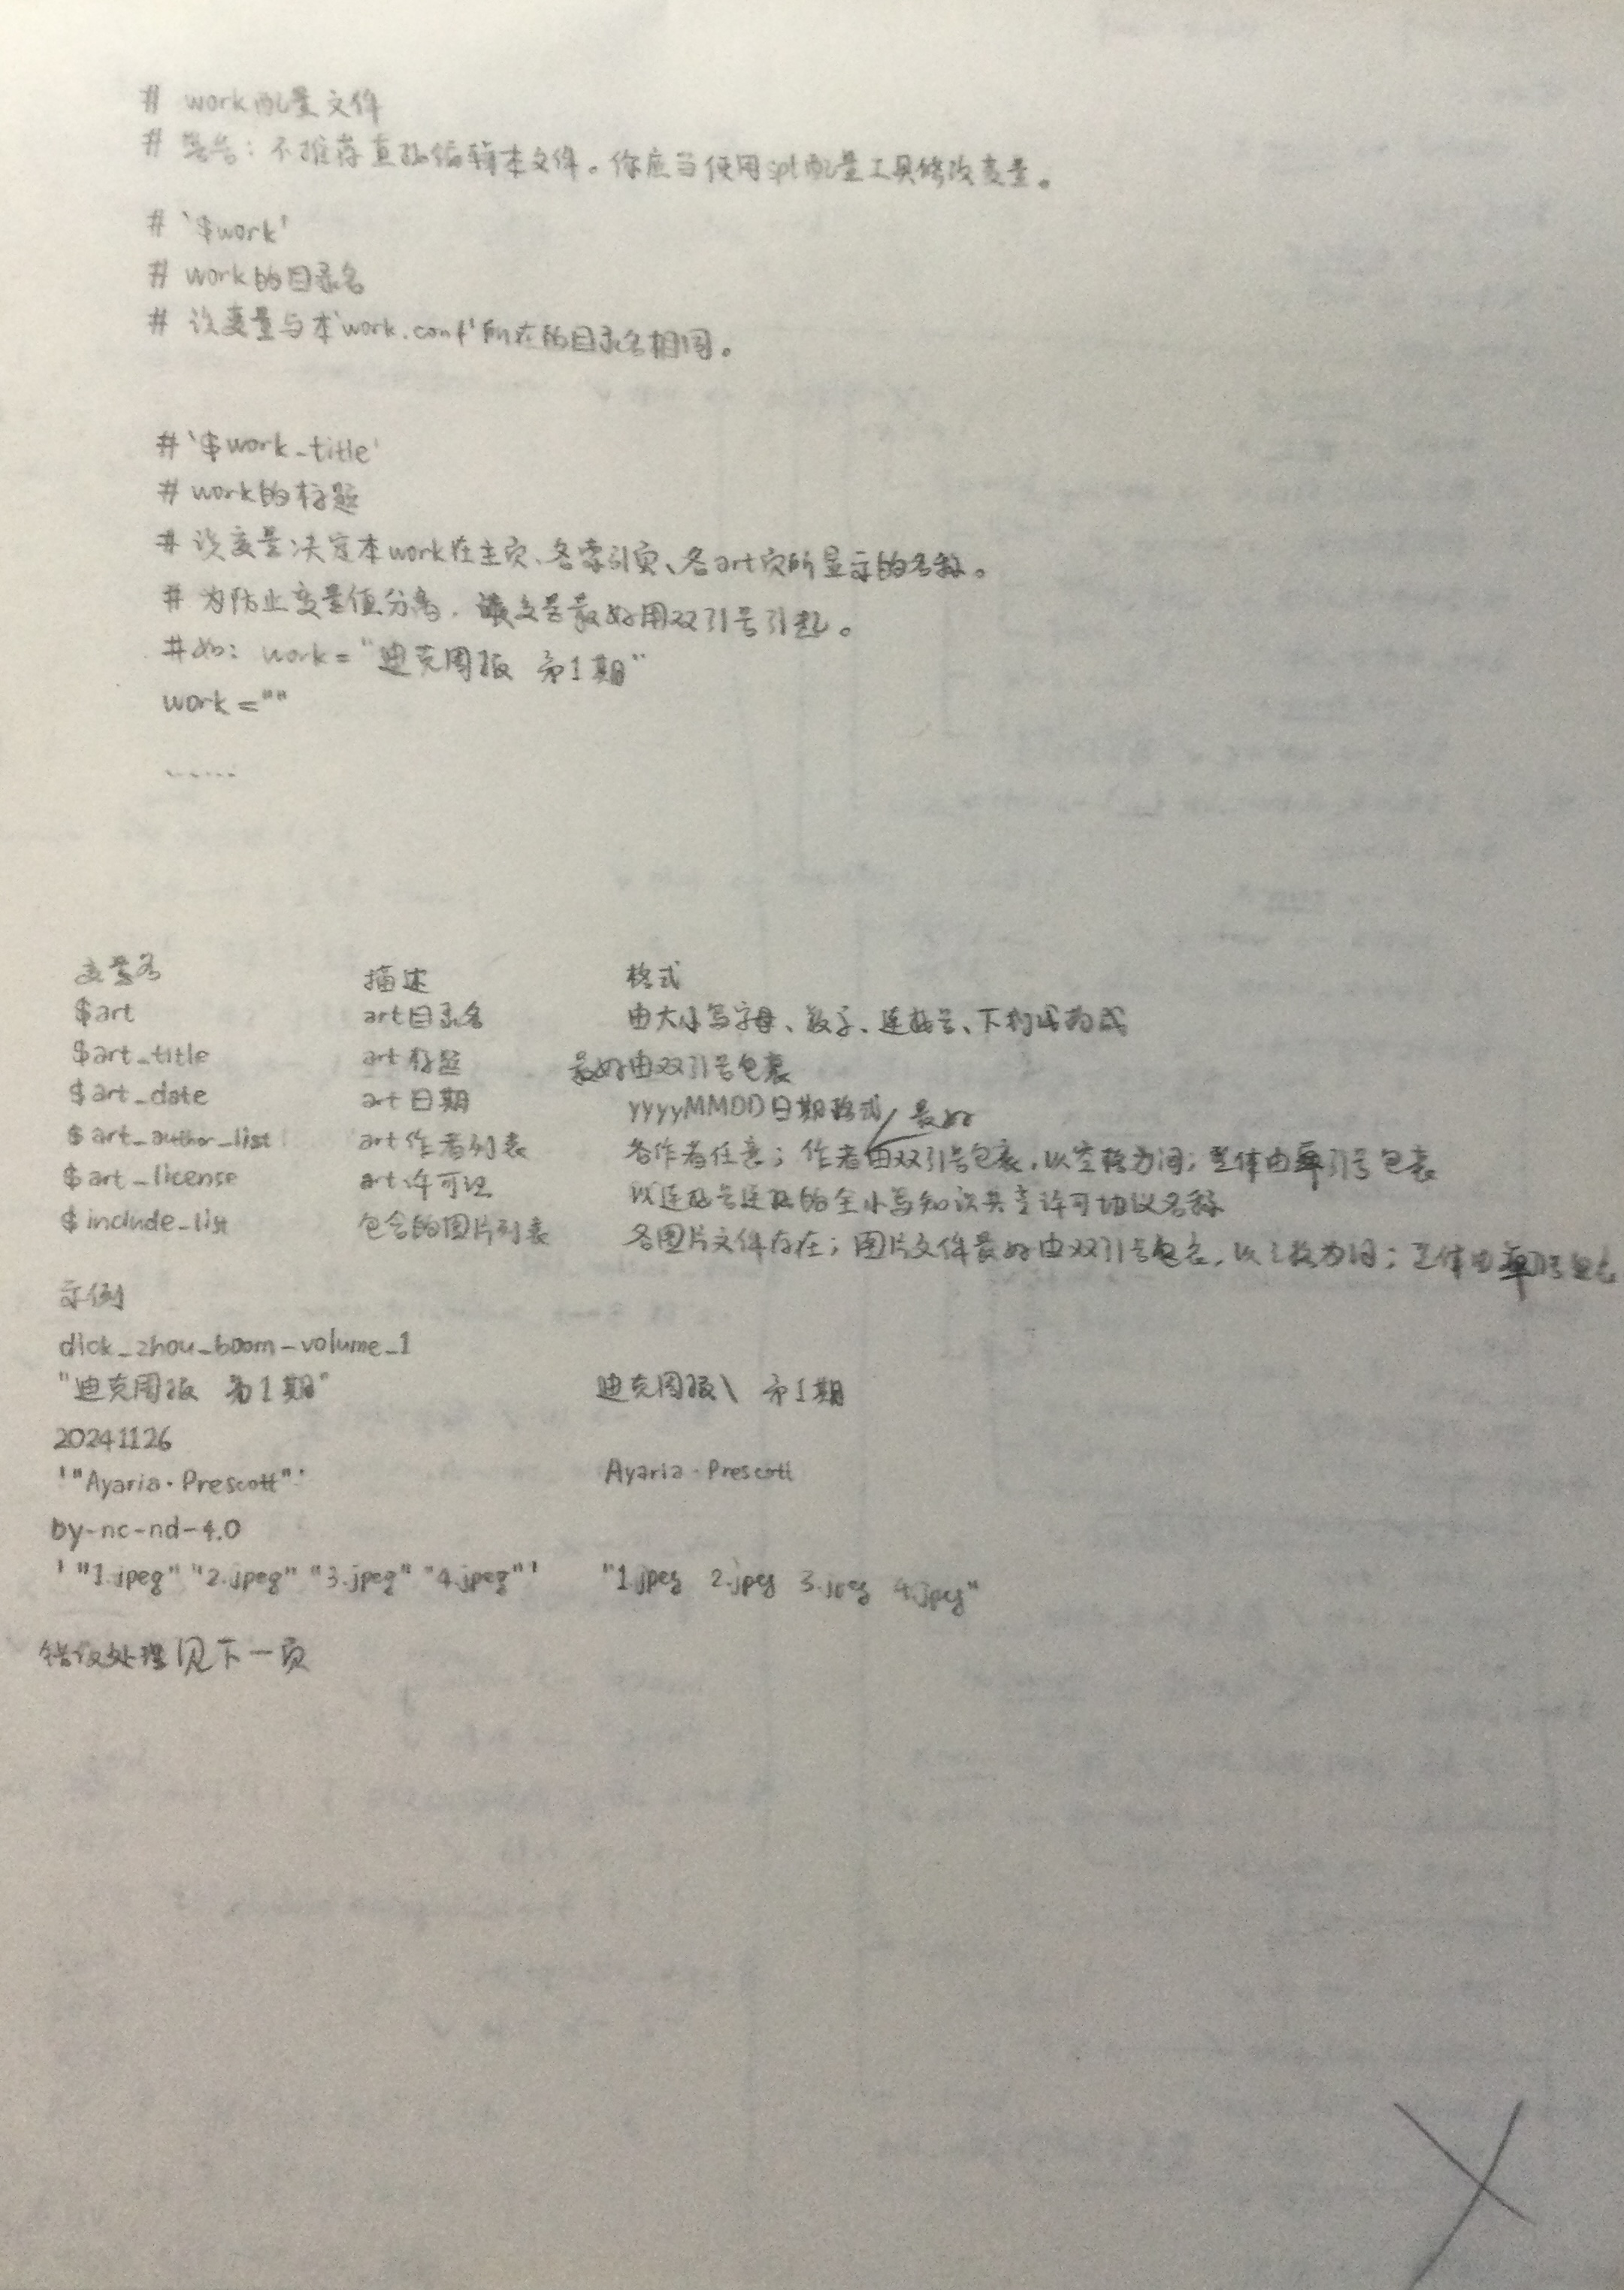 # work配置文件
# 警告：不推荐直接编辑本文件。你应当使用spl配置工具修改变量。
# `$work'
# work的目录名
# 该变量与本'work.conf'所在的目录名相同。
# `$work_title'
# work的标题
# 该变量决定本work在主页、各索引页、各art页所显示的名称。
# 为防止变量值分离，该变量最好用双引号引起。
#如：work="迪克周报 第1期"
work=""
......
变量名 描述 格式
$art art目录名 由大小写字母、数字、连接号、下划线构成
$art_title art标题 最好由双引号包裹
$art_date art日期 yyyyMMDD日期格式
$art_author_list art作者列表 各作者任意；作者最好由双引号包裹，以空格为间；整体由单引号包裹
$art_license art许可证 以连接号连接的全小写知识共享许可协议名称
$include_list 包含的图片列表 各图片文件存在；图片文件最好由双引号包裹，以空格为间；整体由单引号包裹
示例
dick_zhou_boom-volume_1
"迪克周报 第1期" 迪克周报\ 第1期
20241126
'"Ayaria·Prescott"' Ayaria·Prescott
by-nc-nd-4.0
'"1.jpeg" "2.jpeg" "3.jpeg" "4.jpeg"' "1.jpeg 2.jpeg 3.jpeg 4.jpeg"
错误处理见下一页